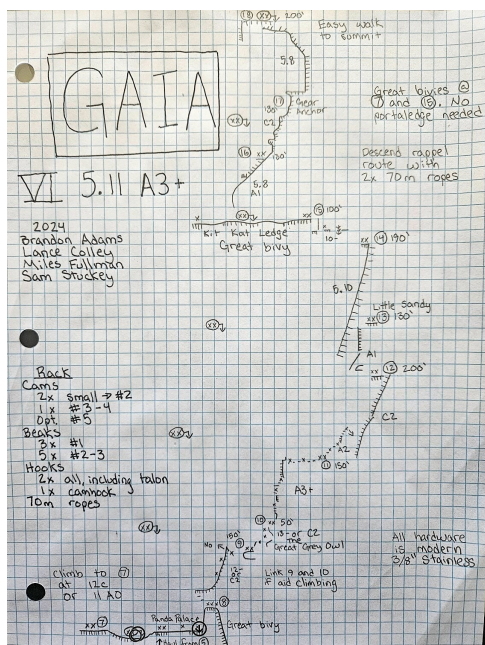 GAIA
VI 5.11 A3+
2024
Brandon Adams
Lance Colley
Miles Fullman
Sam Stuckey
Rack
Cams
2x small → #2
1x #3-4
Opt. #5
Beaks
3x #1
5x #2-3
Hooks
2x all, including talon
1x camhook
70m ropes
Climb to ⑦
at 12c
or 11 A0
⑱ xx 200'
Easy walk
to summit
5.8
⑰
Gear
Anchor
130'
C2
xx
Great bivies @
⑦ and ⑮. No
portaledge needed
⑯ xx
130'
5.8
A1
Descend rappel
route with
2x 70m ropes
xx
x
xx ⑮ 100'
Kit Kat Ledge
Great bivy
10-
⑭ 190'
5.10
Little Sandy
xx ⑬ 130'
xx
A1
xx ⑫ 200'
C2
xx
A2
⑪ 150'
A3+
⑩ 50'
xx
13- or C2
The
Great Grey Owl
150'
NO
⑨
12-
or
C2
Link 9 and 10
if aid climbing
All hardware
is modern
3/8" Stainless
⑧
Great bivy
xx ⑦
Panda Palace